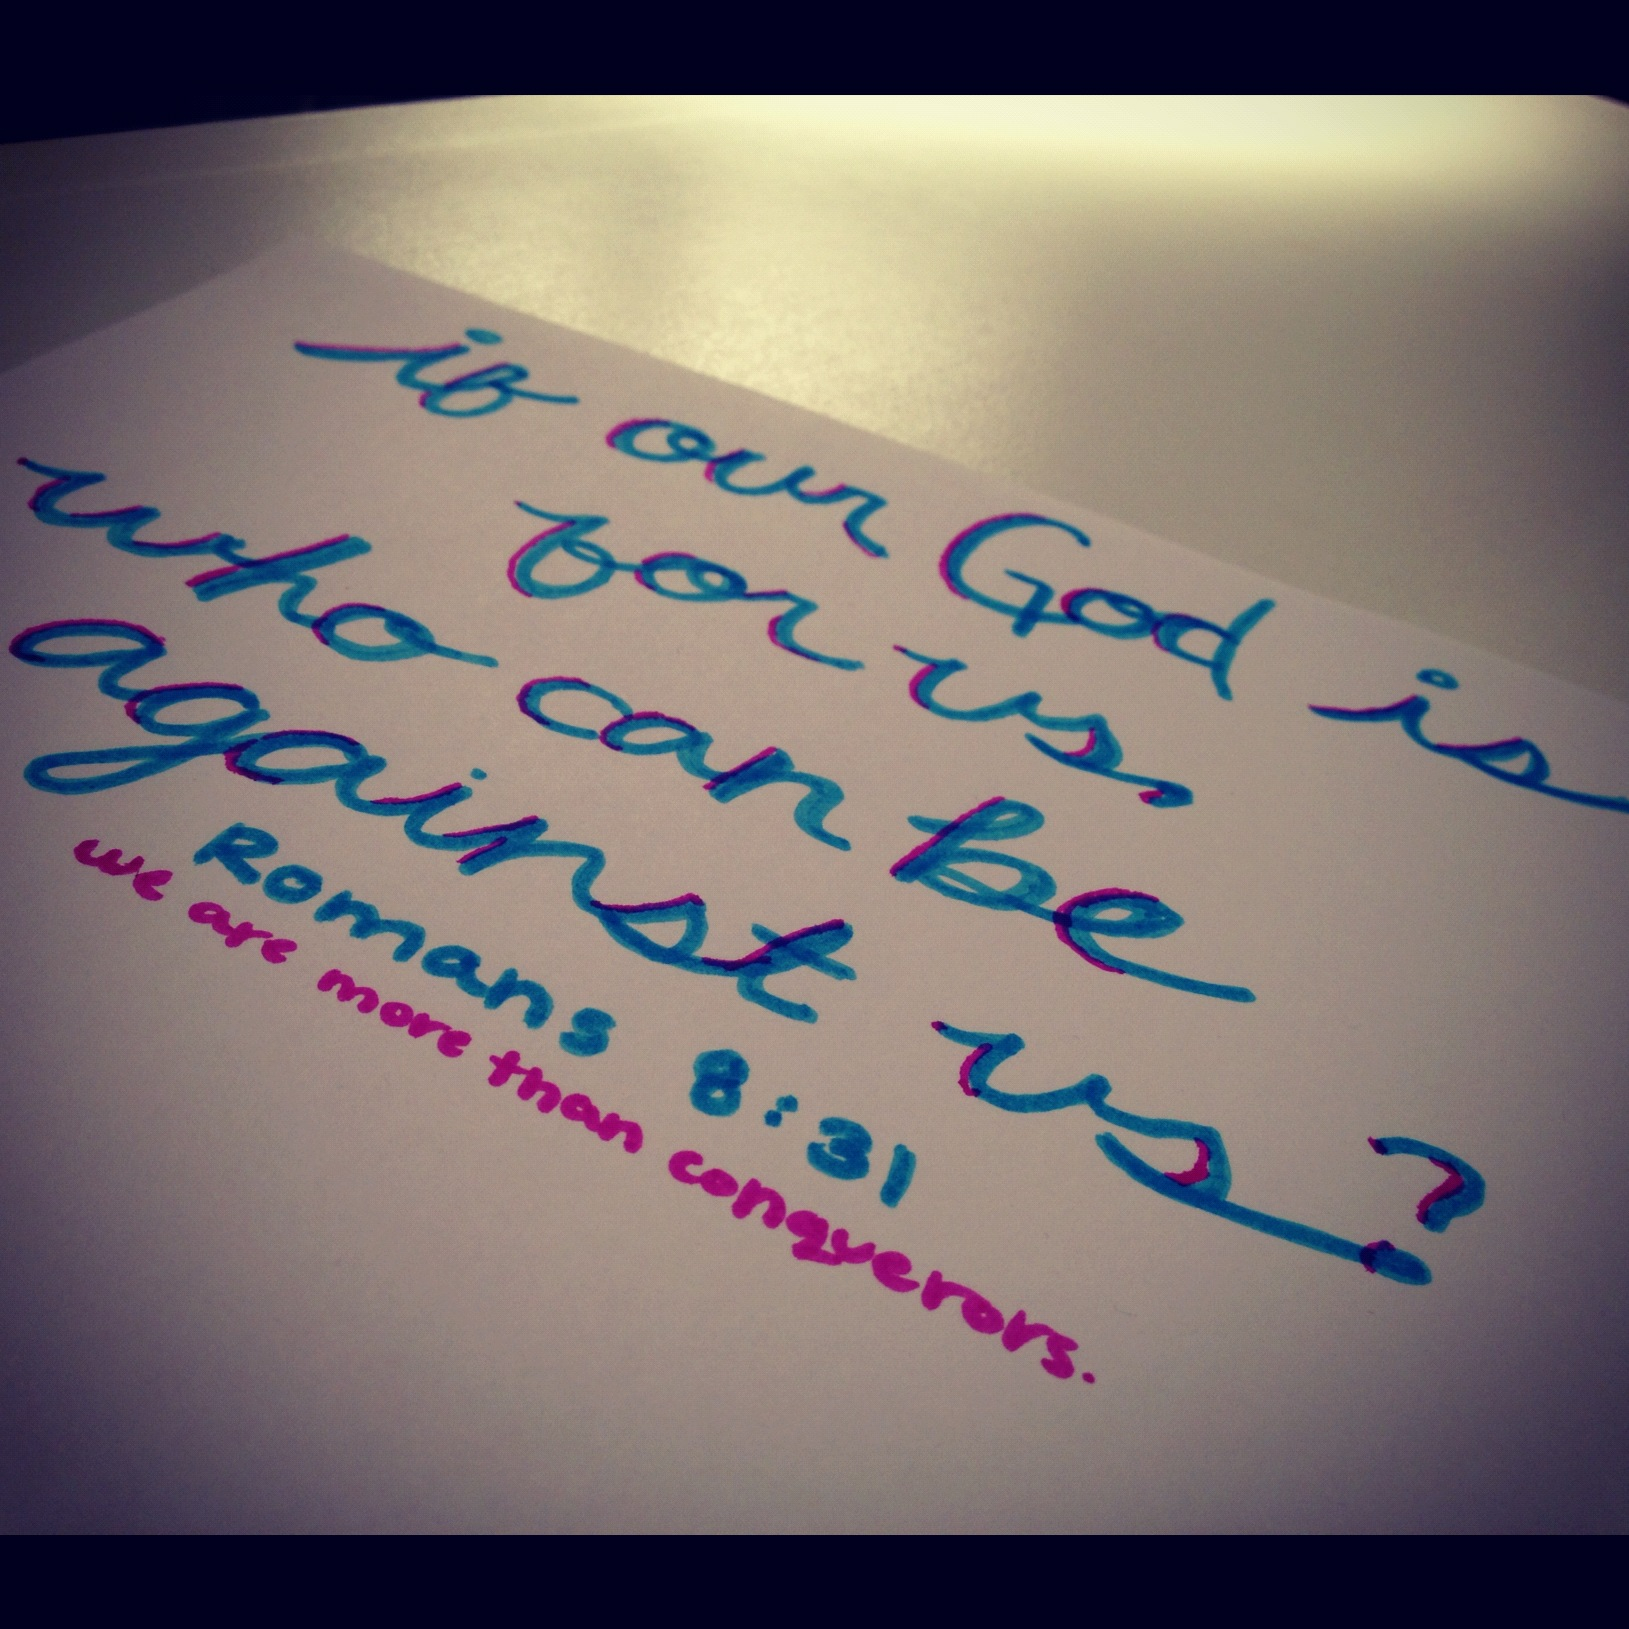 if our God is
for us
who can be
against us?
Romans 8:31
we are more than conquerors.